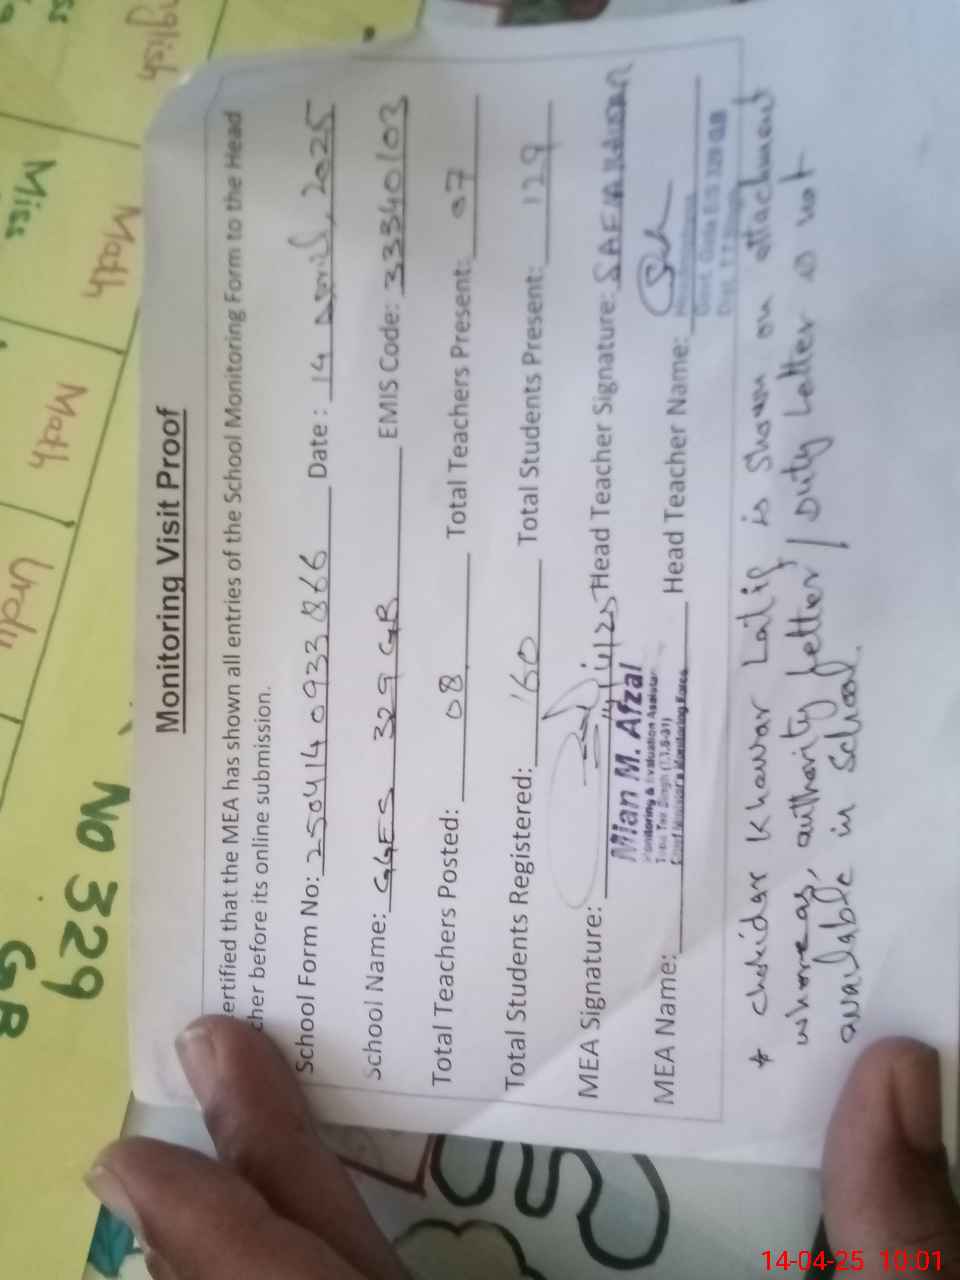 Monitoring Visit Proof
ertified that the MEA has shown all entries of the School Monitoring Form to the Head
cher before its online submission.
School Form No: 250414 0933866 Date: 14 April, 2025
School Name: GGES 329 GB EMIS Code: 33540103
Total Teachers Posted: 08 Total Teachers Present: 07
Total Students Registered: 160 Total Students Present: 129
MEA Signature: Head Teacher Signature:
Mian M. Afzal
Monitoring & Evaluation Assistant
Toba Tek Singh (T.T.S-31)
Chief Minister's Monitoring Force
MEA Name: Head Teacher Name:
* chokidar Khawar Latif is shown on attachment
whereas, authority letter / Duty Letter is not
available in school.
nglish
Miss
Math
Math
Urdu
No 329
GB
14-04-25 10:01